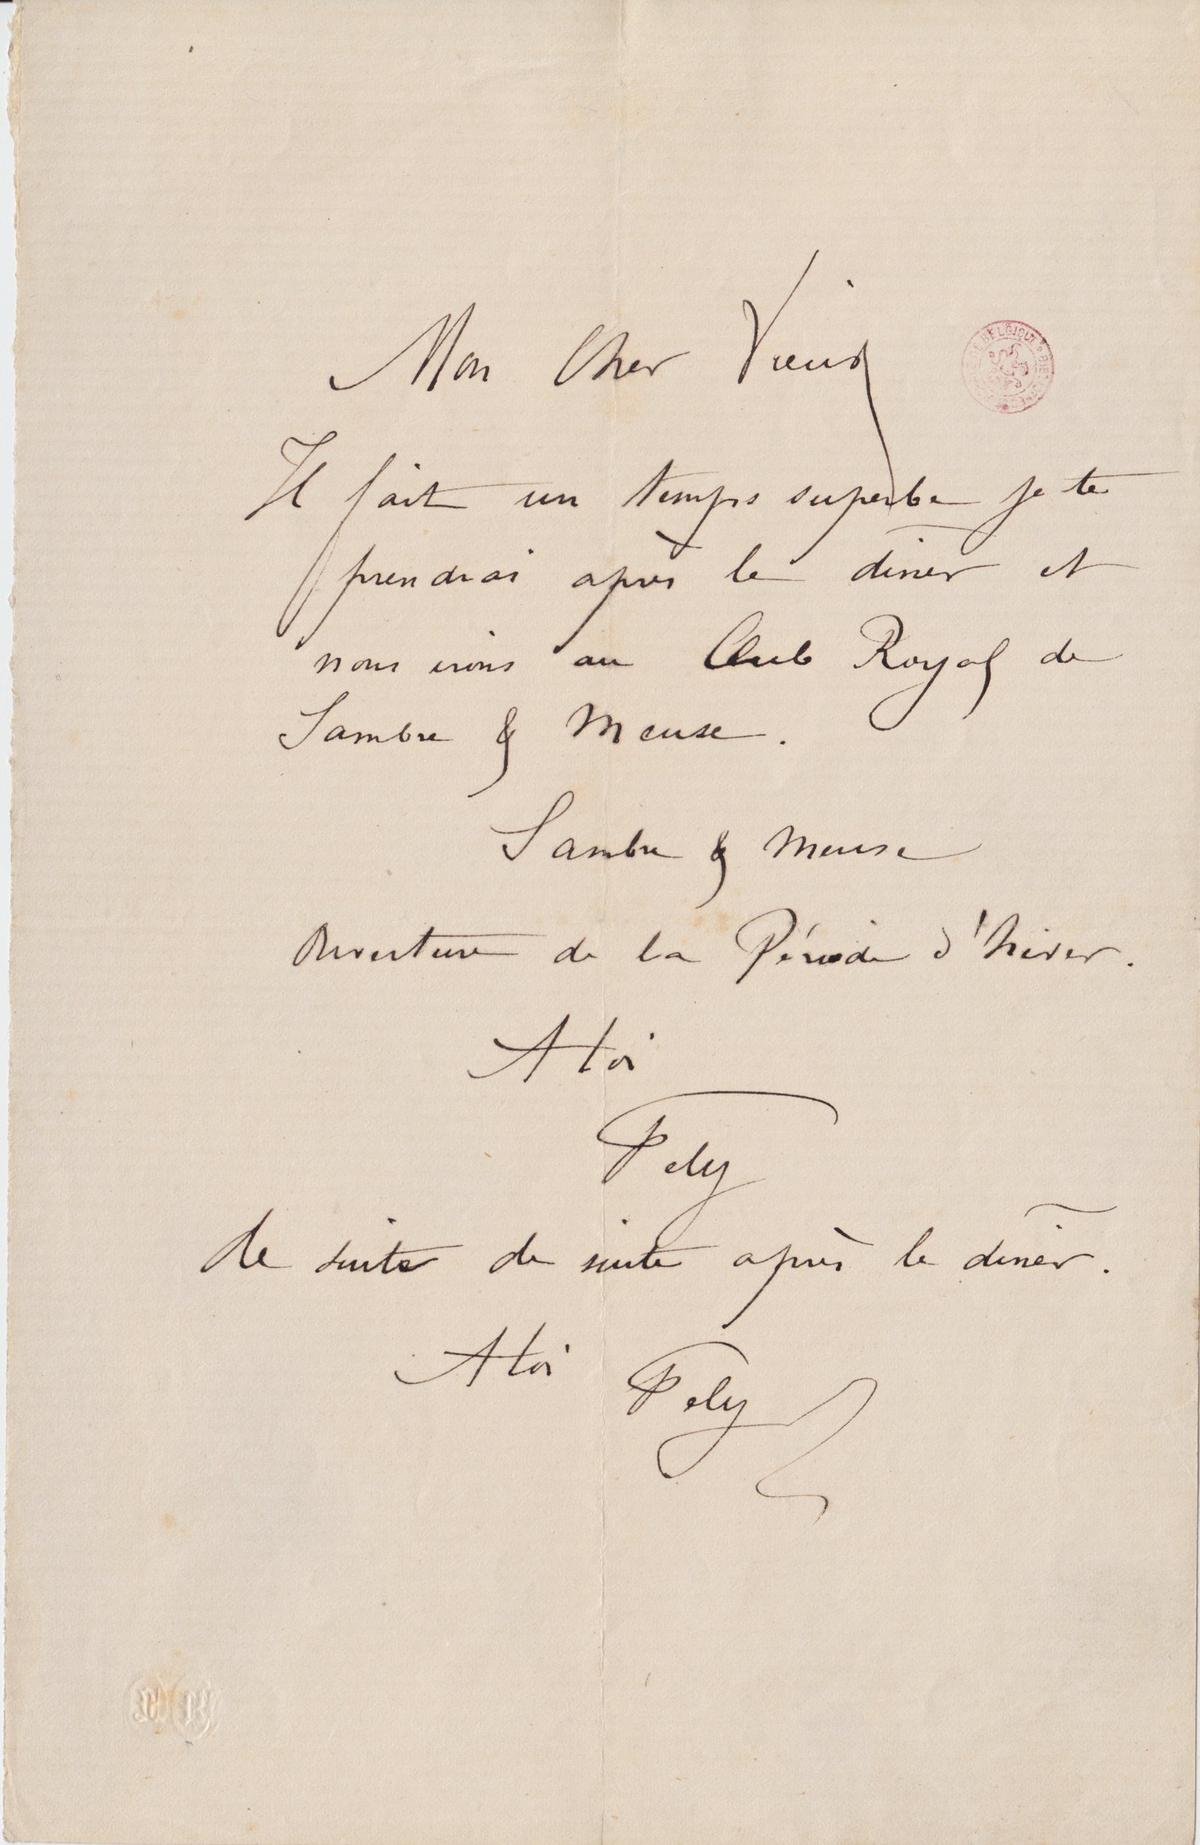 Mon Cher Vieux
Il fait un temps superbe je te
prendrai après le diner et
nous irons au Club Royal de
Sambre & Meuse.
Sambre & Meuse
Ouverture de la Période d'hiver.
A toi
Fély
de suite de suite après le diner.
A toi Fély